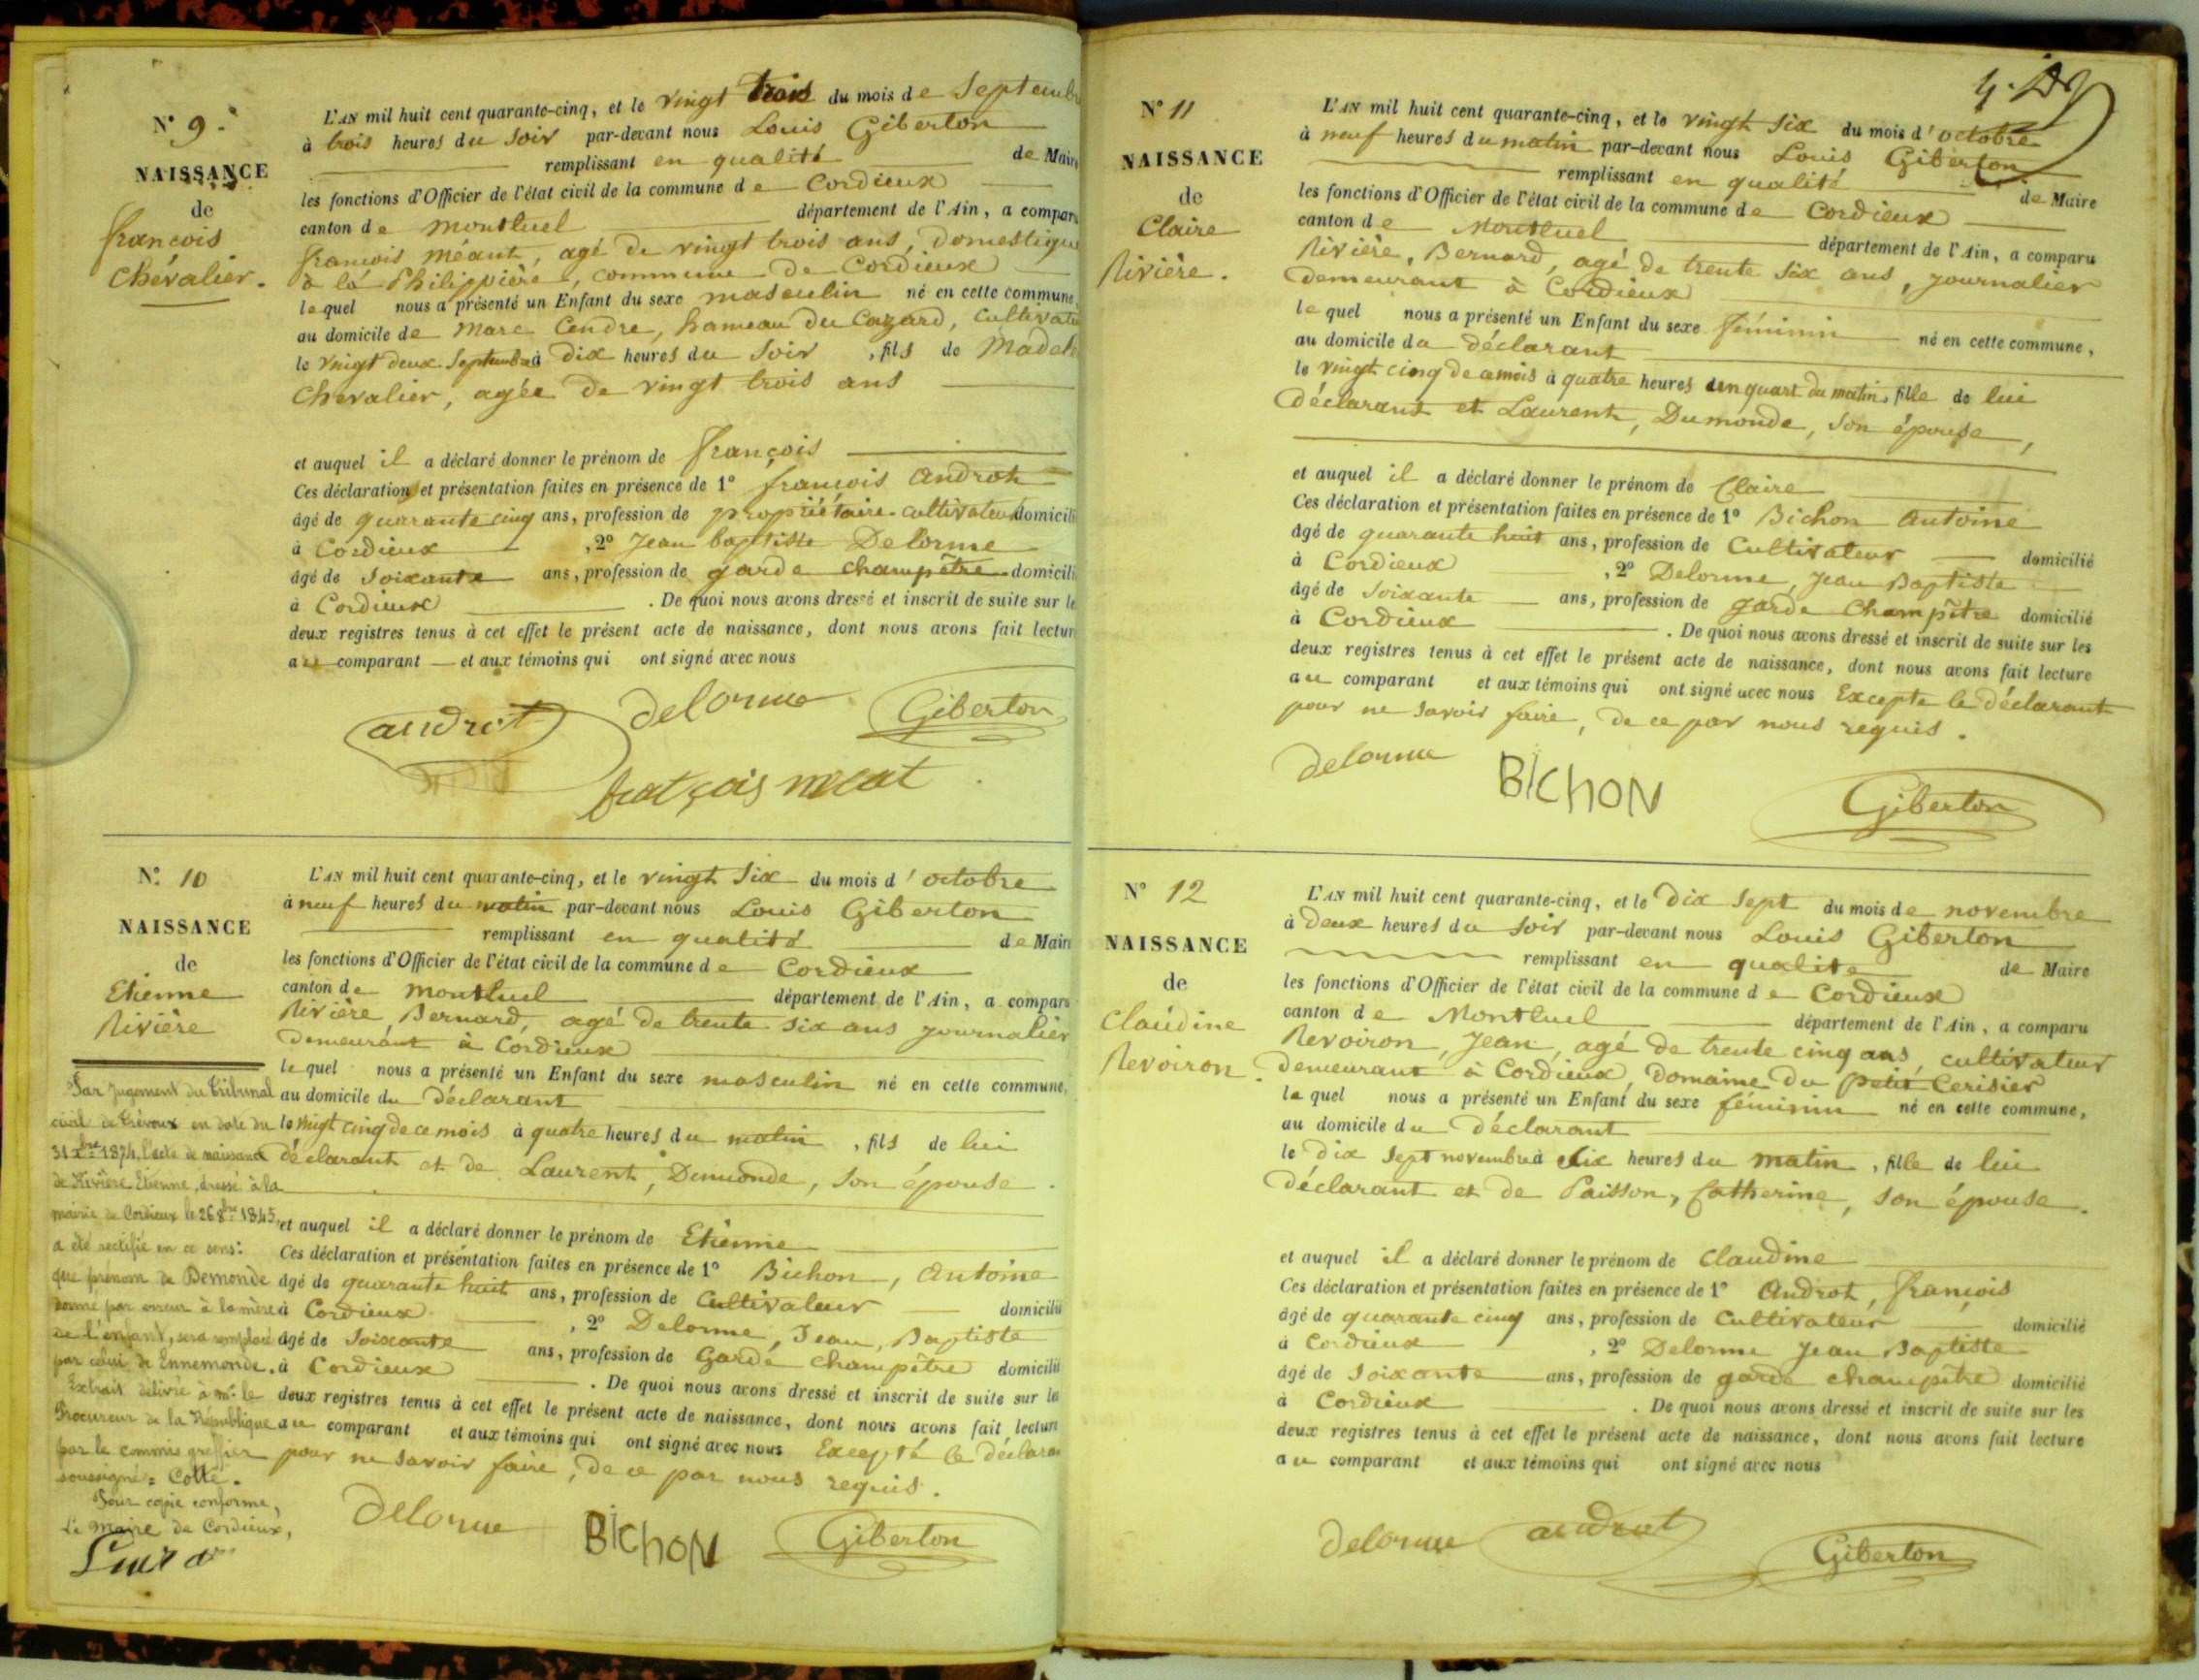 N° 9.
NAISSANCE
de
françois
Chévalier.
L'AN mil huit cent quarante-cinq, et le vingt trois du mois de Septemb
à trois heures du Soir par-devant nous Louis Giberton
remplissant en qualité de Mair
les fonctions d'Officier de l'état civil de la commune de Cordieux
canton de montluel département de l'Ain, a compar
françois méant, agé de vingt trois ans, Domestique
à la Philippière, commune de Cordieux
lequel nous a présenté un Enfant du sexe masculin né en cette commune,
au domicile de Marc Cendre, hameau du Cazard, Cultivate
le vingt deux Septembre à Dix heures du Soir, fils de Madel
Chevalier, agée de vingt trois ans
et auquel il a déclaré donner le prénom de françois
Ces déclaration et présentation faites en présence de 1° françois Androt
âgé de quarante cinq ans, profession de propriétaire-cultivateur domicili
à Cordieux, 2° Jean baptiste Delorme
âgé de Soixante ans, profession de garde champêtre domicili
à Cordieux. De quoi nous avons dressé et inscrit de suite sur le
deux registres tenus à cet effet le présent acte de naissance, dont nous avons fait lectur
au comparant et aux témoins qui ont signé avec nous
androt delorme Giberton
françois meat
N° 10
NAISSANCE
de
Etienne
Rivière
L'AN mil huit cent quarante-cinq, et le vingt Six du mois d'octobre
à neuf heures du matin par-devant nous Louis Giberton
remplissant en qualité de Mair
les fonctions d'Officier de l'état civil de la commune de Cordieux
canton de montluel département de l'Ain, a compar
Rivière, Bernard, agé de trente six ans journalier
Demeurant à Cordieux
lequel nous a présenté un Enfant du sexe masculin né en cette commune,
au domicile du Déclarant
le vingt cinq de ce mois à quatre heures du matin, fils de lui
déclarant et de Laurent, Dumonde, Son épouse.
et auquel il a déclaré donner le prénom de Etienne
Ces déclaration et présentation faites en présence de 1° Bichon, Antoine
âgé de quarante huit ans, profession de Cultivateur domicilié
à Cordieux, 2° Delorme, Jean, Baptiste
âgé de Soixante ans, profession de Garde Champêtre domicilié
à Cordieux. De quoi nous avons dressé et inscrit de suite sur le
deux registres tenus à cet effet le présent acte de naissance, dont nous avons fait lectur
au comparant et aux témoins qui ont signé avec nous Excepté le déclara
pour ne Savoir faire, de ce par nous requis.
Delorme BICHON Giberton
Par Jugement du Tribunal
civil de Trévoux en date du
31 Xbre 1874, l'acte de naissance
de Rivière Etienne, dressé à la
mairie de Cordieux le 26 8bre 1845,
a été rectifié en ce sens:
que prénom de Demonde
donné par erreur à la mère
de l'enfant, sera remplacé
par celui de Ennemonde.
Extrait délivré à Mr. le
Procureur de la République
par le commis greffier
soussigné = Cotte.
Pour copie conforme,
Le Maire de Cordieux,
N° 11
NAISSANCE
de
Claire
Rivière.
L'AN mil huit cent quarante-cinq, et le vingt Six du mois d'octobre
à neuf heures du matin par-devant nous Louis Giberton
remplissant en qualité de Maire
les fonctions d'Officier de l'état civil de la commune de Cordieux
canton de Montluel département de l'Ain, a comparu
Rivière, Bernard, agé de trente Six ans, journalier
Demeurant à Cordieux
lequel nous a présenté un Enfant du sexe féminin né en cette commune,
au domicile du déclarant
le vingt cinq de ce mois à quatre heures un quart du matin, fille de lui
déclarant et Laurent, Dumonde, Son épouse,
et auquel il a déclaré donner le prénom de Claire
Ces déclaration et présentation faites en présence de 1° Bichon Antoine
âgé de quarante huit ans, profession de Cultivateur domicilié
à Cordieux, 2° Delorme, Jean Baptiste
âgé de Soixante ans, profession de Garde Champêtre domicilié
à Cordieux. De quoi nous avons dressé et inscrit de suite sur les
deux registres tenus à cet effet le présent acte de naissance, dont nous avons fait lecture
au comparant et aux témoins qui ont signé avec nous Excepte le déclarant
pour ne Savoir faire, de ce par nous requis.
delorme BICHON Giberton
N° 12
NAISSANCE
de
Claudine
Revoiron.
L'AN mil huit cent quarante-cinq, et le Dix Sept du mois de novembre
à Deux heures du Soir par-devant nous Louis Giberton
remplissant en qualité de Maire
les fonctions d'Officier de l'état civil de la commune de Cordieux
canton de Montluel département de l'Ain, a comparu
Revoiron, Jean, agé de trente cinq ans, cultivateur
Demeurant à Cordieux, Domaine du petit Cerisier
lequel nous a présenté un Enfant du sexe féminin né en cette commune,
au domicile du Déclarant
le Dix Sept novembre à Six heures du matin, fille de lui
Déclarant et de Paisson, Catherine, Son épouse.
et auquel il a déclaré donner le prénom de Claudine
Ces déclaration et présentation faites en présence de 1° Androt, François
âgé de quarante cinq ans, profession de Cultivateur domicilié
à Cordieux, 2° Delorme Jean Baptiste
âgé de Soixante ans, profession de garde champêtre domicilié
à Cordieux. De quoi nous avons dressé et inscrit de suite sur les
deux registres tenus à cet effet le présent acte de naissance, dont nous avons fait lecture
au comparant et aux témoins qui ont signé avec nous
delorme androt Giberton